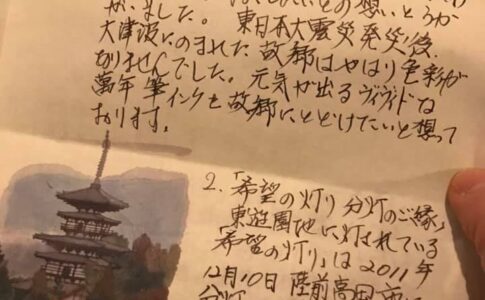 がいました。
大津波にのまれた故郷はやはり色彩が
東日本大震災発災後、
ありませんでした。元気が出るヴィヴィドな
萬年筆インクを故郷にとどけたいと想って
おります。
2.「希望の灯り分灯のご縁」
東遊園地に灯されている
「希望の灯り」は2011年
12月10日陸前高田市
分灯